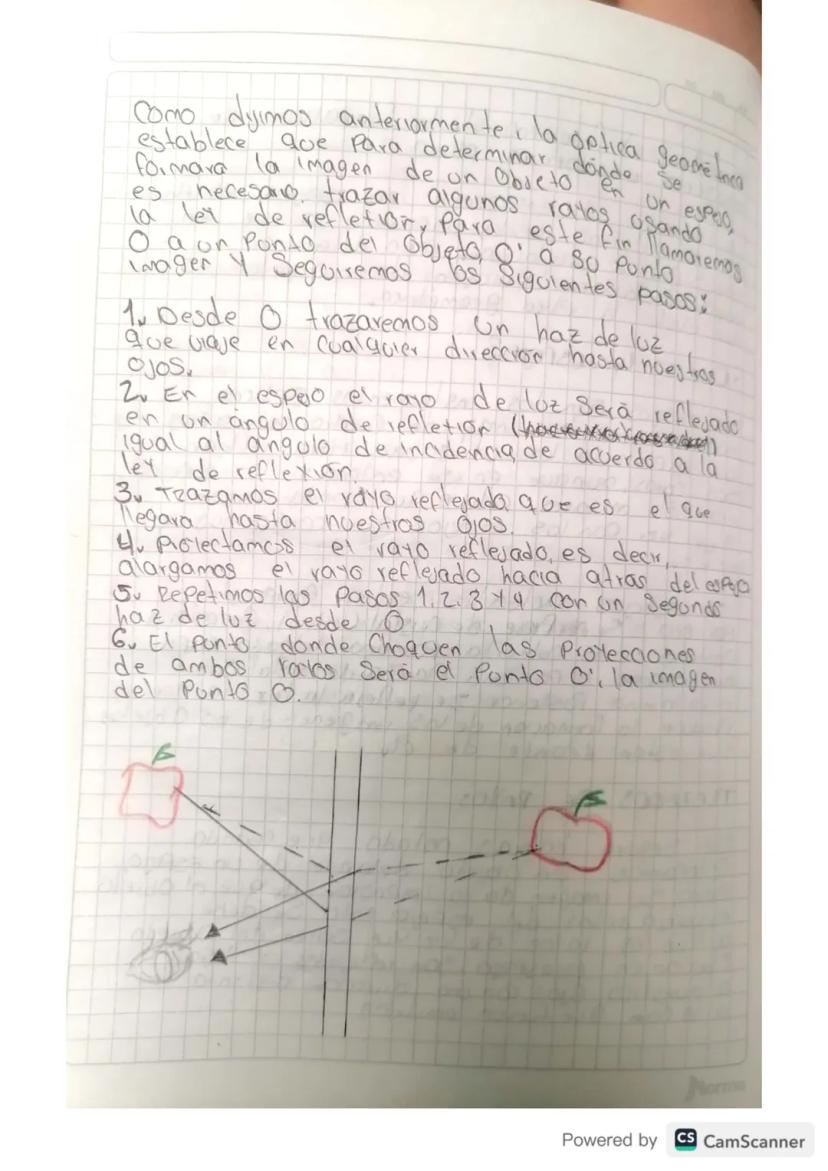 Como dijimos anteriormente, la optica geometrica
establece que para determinar dónde se
formara la imagen de un objeto en un espejo,
es necesario trazar algunos rayos usando
la ley de refletion, para este fin llamaremos
O a un punto del objeto, O' a su punto
imagen y seguiremos los siguientes pasos:
1. Desde O trazaremos un haz de luz
que viaje en cualquier direccion hasta nuestros
ojos.
2. En el espejo el rayo de luz será reflejado
en un ángulo de refletion
igual al angulo de incidencia, de acuerdo a la
ley de reflexion.
3. Trazamos el rayo reflejada que es el que
llegara hasta nuestros ojos.
4. Proyectamos el rayo reflejado, es decir,
alargamos el rayo reflejado hacia atras del espejo
5. Repetimos las pasos 1, 2, 3 y 4 con un segundo
haz de luz desde O
6. El punto donde choquen las proyecciones
de ambos rayos será el punto O', la imagen
del punto O.
Norma
Powered by CS CamScanner